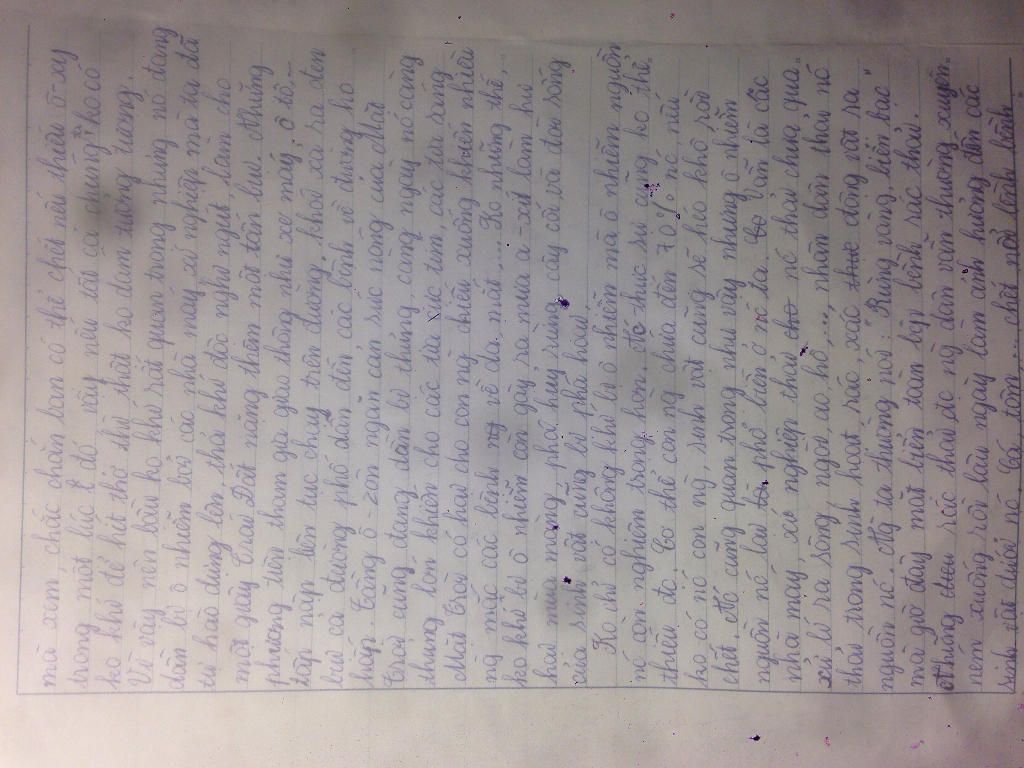 mà xem, chắc chắn bạn có thể chết nếu thiếu ô-xy
trong một lúc ! do vậy nếu tất cả chúng ta ko có
ko khí để hít thở thì thật ko dám tưởng tượng.
Vì vậy nên bầu ko khí rất quan trọng nhưng nó đang
dần bị ô nhiễm bởi các nhà máy, xí nghiệp mà ta đã
tự hào dựng lên, thải khí độc nghi ngút, làm cho
một giây Trái Đất nặng thêm một tấn bụi. Những
phương tiện tham gia giao thông như xe máy, ô tô, ...
tấp nập liên tục chạy trên đường, khói xả ra đen
bụi cả đường phố dẫn đến các bệnh về đường hô
hấp. Tầng ô-zôn ngăn cản sức nóng của Mặt
Trời cũng đang dần bị thủng, càng ngày nó càng
thủng lớn khiến cho các tia cực tím, các tia sáng
Mặt Trời có hại cho con ng chiếu xuống khiến nhiều
ng mắc các bệnh về da, mắt, ... . Ko những thế,
ko khí bị ô nhiễm còn gây ra mưa a-xít làm hư
hại mùa màng, phá huỷ rừng cây cối, và đời sống
của sinh vật cũng bị phá hoại.
Ko chỉ có không khí bị ô nhiễm mà ô nhiễm nguồn
nó còn nghiêm trọng hơn. thực sự cũng ko thể
thiếu đc. Cơ thể con ng chứa đến 70% nó, nếu
ko có nó con ng, sinh vật cũng sẽ héo khô, rồi
chết, nó cũng quan trọng như vậy nhưng ô nhiễm
nguồn nó lại phổ biến ở nc ta. Vẫn là các
nhà máy, xí nghiệp thải nc thải chưa qua
xử lí ra sông ngòi ao hồ ..., nhân dân thải nc
thải trong sinh hoạt, rác, xác động vật ra
nguồn nc. Ng ta thường nói "Rừng vàng, biển bạc"
mà giờ đây mặt biển toàn bệnh rác thải.
Những rác thải do ng dân vẫn thường xuyên
ném xuống rồi lâu ngày làm ảnh hưởng đến các
sinh vật dưới nc. Cá tôm ... hết nổi lềnh bềnh